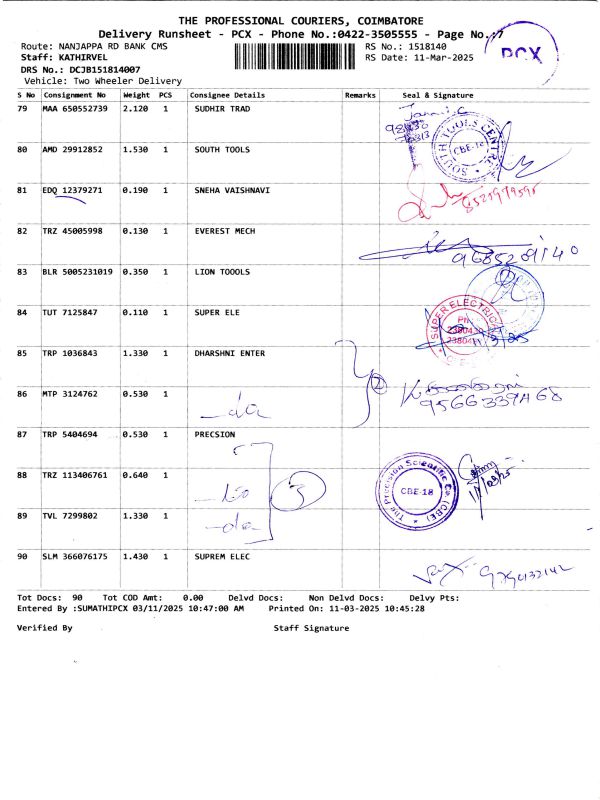 THE PROFESSIONAL COURIERS, COIMBATORE
Delivery Runsheet - PCX - Phone No.:0422-3505555 - Page No.:7
PCX
Route: NANJAPPA RD BANK CMS
RS No.: 1518140
Staff: KATHIRVEL
RS Date: 11-Mar-2025
DRS No.: DCJB151814007
Vehicle: Two Wheeler Delivery
S No Consignment No Weight PCS Consignee Details Remarks Seal & Signature
79 MAA 650552739 2.120 1 SUDHIR TRAD
80 AMD 29912852 1.530 1 SOUTH TOOLS
SOUTH TOOLS CENTRE CBE-18
81 EDQ 12379271 0.190 1 SNEHA VAISHNAVI
82 TRZ 45005998 0.130 1 EVEREST MECH
9685209140
83 BLR 5005231019 0.350 1 LION TOOOLS
84 TUT 7125847 0.110 1 SUPER ELE
SUPER ELECTRICAL
85 TRP 1036843 1.330 1 DHARSHNI ENTER
86 MTP 3124762 0.530 1
-do
2
9566339468
87 TRP 5404694 0.530 1 PRECSION
88 TRZ 113406761 0.640 1
-do
3
The Precision Scientific Co. (CBE) CBE-18
11/03/25
89 TVL 7299802 1.330 1
-do
90 SLM 366076175 1.430 1 SUPREM ELEC
9790132142
Tot Docs: 90 Tot COD Amt: 0.00 Delvd Docs: Non Delvd Docs: Delvy Pts:
Entered By :SUMATHIPCX 03/11/2025 10:47:00 AM Printed On: 11-03-2025 10:45:28
Verified By Staff Signature